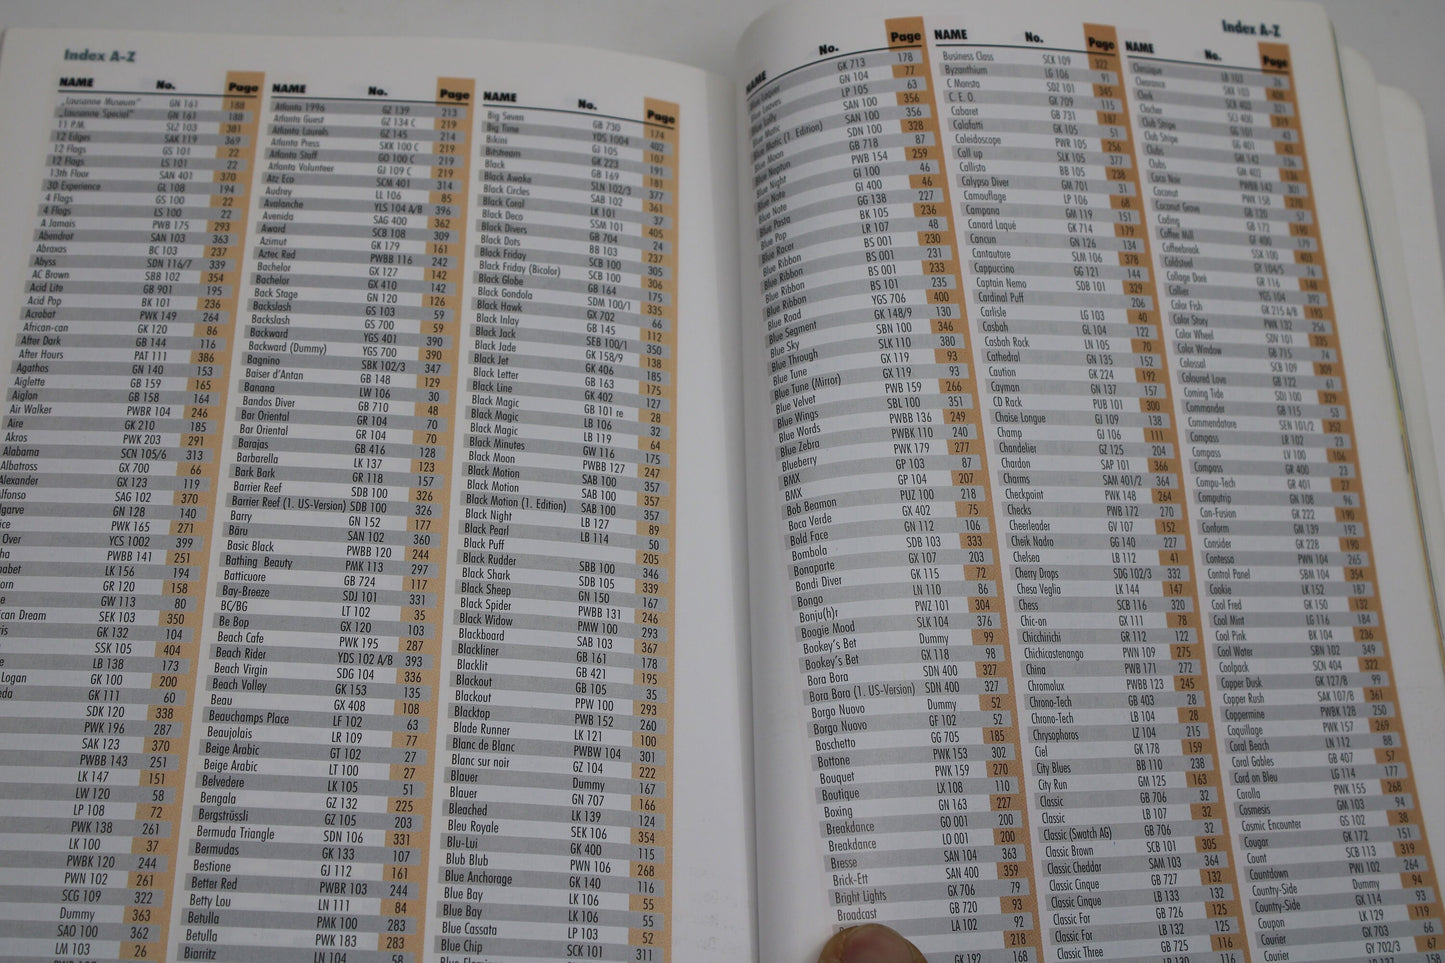 Index A-Z
NAME No. Page
„Lausanne Museum" GN 161 188
„Lausanne Special" GN 161 188
11 P.M. SLZ 103 381
12 Edges SAK 119 369
12 Flags GS 101 22
12 Flags LS 101 22
13th Floor SAN 401 370
3D Experience GL 108 194
4 Flags GS 100 22
4 Flags LS 100 22
A Jamais PWB 175 293
Abendrot SAN 103 363
Abraxas BC 103 237
Abyss SDN 116/7 339
AC Brown SBB 102 354
Acid Lite GB 901 195
Acid Pop BK 101 236
Acrobat PWK 149 264
African-can GK 120 86
After Dark GB 144 116
After Hours PAT 111 386
Agathos GN 140 153
Aiglette GB 159 165
Aiglon GB 158 164
Air Walker PWBR 104 246
Aire GK 210 185
Akros PWK 203 291
Alabama SCN 105/6 313
Albatross GX 700 66
Alexander GX 123 119
Alfonso SAG 102 370
lgarve GN 128 140
ice PWK 165 271
Over YCS 1002 399
ha PWBB 141 251
habet LK 156 194
orn GR 120 158
e GW 113 80
ican Dream SEK 103 350
ris GK 132 104
SSK 105 404
le LB 138 173
Logan GK 100 200
eda GK 111 60
SDK 120 338
PWK 196 287
SAK 123 370
PWBB 143 251
LK 147 151
LW 120 58
LP 108 72
PWK 138 261
LK 100 37
PWBK 120 244
PWN 102 261
SCG 109 322
Dummy 363
SAO 100 362
LM 103 26
NAME No. Page
Atlanta 1996 GZ 139 213
Atlanta Guest GZ 134 C 219
Atlanta Laurels GZ 145 214
Atlanta Press SKK 100 C 219
Atlanta Staff GO 100 C 219
Atlanta Volunteer GJ 109 C 219
Atz Eco SCM 401 314
Audrey LL 106 85
Avalanche YLS 104 A/B 396
Avenida SAG 400 362
Award SCB 108 309
Azimut GK 179 161
Aztec Red PWBB 116 242
Bachelor GX 127 142
Bachelor GX 410 142
Back Stage GN 120 126
Backslash GS 103 59
Backslash GS 700 59
Backward YGS 401 390
Backward (Dummy) YGS 700 390
Bagnino SBK 102/3 347
Baiser d'Antan GB 148 129
Banana LW 106 30
Bandos Diver GB 710 48
Bar Oriental GR 104 70
Bar Oriental GR 104 70
Barajas GB 416 128
Barbarella LK 137 123
Bark Bark GR 118 157
Barrier Reef SDB 100 326
Barrier Reef (1. US-Version) SDB 100 326
Barry GN 152 177
Bäru SAN 102 360
Basic Black PWBB 120 244
Bathing Beauty PMK 113 297
Batticuore GB 724 117
Bay-Breeze SDJ 101 331
BC/BG LT 102 35
Be Bop GX 120 103
Beach Cafe PWK 195 287
Beach Rider YDS 102 A/B 393
Beach Virgin SDG 104 336
Beach Volley GK 153 135
Beau GX 408 108
Beauchamps Place LF 102 63
Beaujolais LR 109 77
Beige Arabic GT 102 27
Beige Arabic LT 100 27
Belvedere LK 105 51
Bengala GZ 132 225
Bergstrüssli GZ 105 203
Bermuda Triangle SDN 106 331
Bermudas GK 133 107
Bestione GJ 112 161
Better Red PWBR 103 244
Betty Lou LN 111 84
Betulla PMK 100 283
Betulla PWK 183 283
Biarritz LN 104 58
NAME No. Page
Big Seven GB 730 174
Big Time YDS 1004 402
Bikini GJ 105 107
Bitstream GK 223 191
Black GB 169 181
Black Awake SLN 102/3 377
Black Circles SAB 102 361
Black Coral LK 101 37
Black Deco SSM 101 405
Black Divers GB 704 24
Black Dots BB 103 237
Black Friday SCB 100 305
Black Friday (Bicolor) SCB 100 306
Black Globe GB 164 175
Black Gondola SDM 100/1 335
Black Hawk GX 702 66
Black Inlay GB 145 112
Black Jack SEB 100/1 350
Black Jade GK 158/9 138
Black Jet GK 406 185
Black Letter GB 163 175
Black Line GK 402 127
Black Magic GB 101 re 28
Black Magic LB 106 32
Black Magic LB 119 64
Black Minutes GW 116 175
Black Moon PWBB 127 247
Black Motion SAB 100 357
Black Motion SAB 100 357
Black Motion (1. Edition) SAB 100 357
Black Night LB 127 89
Black Pearl LB 114 50
Black Puff 205
Black Rudder SBB 100 346
Black Shark SDB 105 339
Black Sheep GN 150 167
Black Spider PWBB 131 246
Black Widow PMW 100 293
Blackboard SAB 103 367
Blackliner GB 161 178
Blacklit GB 421 195
Blackout GB 105 35
Blackout PPW 100 293
Blacktop PWB 152 260
Blade Runner LK 121 100
Blanc de Blanc PWBW 104 301
Blanc sur noir GZ 104 222
Blauer Dummy 167
Blauer GN 707 166
Bleached LK 139 124
Bleu Royale SEK 106 354
Blu-Lui GK 400 115
Blub Blub PWN 106 268
Blue Anchorage GK 140 116
Blue Bay LK 106 55
Blue Bay LK 106 55
Blue Cassata LP 103 52
Blue Chip SCK 101 311
Index A-Z
NAME No. Page
Blue Laquer GK 713 178
Blue Leaves GN 104 77
Blue Lolly LP 105 63
Blue Matic SAN 100 356
Blue Matic (1. Edition) SAN 100 356
Blue Moon SDN 100 328
Blue Nephton GB 718 87
Blue Night PWB 154 259
Blue Note GI 100 46
Blue Note GI 400 46
Blue Pasta GG 138 227
Blue Pop BK 105 236
Blue Racer LR 107 48
Blue Ribbon BS 001 230
Blue Ribbon BS 001 231
Blue Ribbon BS 001 233
Blue Ribbon BS 101 235
Blue Road YGS 706 400
Blue Segment GK 148/9 130
Blue Sky SBN 100 346
Blue Through SLK 110 380
Blue Tune GX 119 93
Blue Tune (Mirror) GX 119 93
Blue Velvet PWB 159 266
Blue Wings SBL 100 351
Blue Words PWBB 136 249
Blue Zebra PWBK 110 240
Blueberry PWK 179 277
BMX GP 103 87
BMX GP 104 207
Bob Beamon PUZ 100 218
Boca Verde GX 402 75
Bold Face GN 112 106
Bombola SDB 103 333
Bonaparte GX 107 203
Bondi Diver GK 115 72
Bongo LN 110 86
Bonju(h)r PWZ 101 304
Boogie Mood SLK 104 376
Bookey's Bet Dummy 99
Bookey's Bet GX 118 98
Bora Bora SDN 400 327
Bora Bora (1. US-Version) SDN 400 327
Borgo Nuovo Dummy 52
Borgo Nuovo GF 102 52
Boschetto GG 705 185
Bottone PWK 153 302
Bouquet PWK 159 270
Boutique LX 108 110
Boxing GN 163 227
Breakdance GO 001 200
Breakdance LO 001 200
Bresse SAN 104 363
Brick-Ett SAN 400 359
Bright Lights GX 706 79
Broadcast GB 720 93
LA 102 92
218
GK 192 168
NAME No. Page
Business Class SCK 109 322
Byzanthium LG 106 91
C Monsta SDZ 101 345
C. E. O. GX 709 115
Cabaret GB 731 187
Calafatti GK 105 51
Caleidoscope PWR 105 256
Call up SLK 105 377
Callisto BB 105 238
Calypso Diver GM 701 31
Camouflage LP 106 68
Campana GM 119 151
Canard Laqué GK 714 179
Cancun GN 126 134
Cantautore SLM 106 378
Cappuccino GG 121 144
Captain Nemo SDB 101 329
Cardinal Puff 206
Carlisle LG 103 40
Casbah GL 104 122
Casbah Rock LN 105 70
Cathedral GN 135 152
Caution GK 224 192
Cayman GN 137 157
CD Rack PUB 101 300
Chaise Longue GJ 109 138
Champ GJ 106 111
Chandelier GZ 125 204
Chardon SAP 101 366
Charms SAM 401/2 364
Checkpoint PWK 148 264
Checks PWB 172 270
Cheerleader GV 107 152
Cheik Nadro GG 140 227
Chelsea LB 112 41
Cherry Drops SDG 102/3 332
Chesa Veglia LK 144 147
Chess SCB 116 320
Chic-on GX 111 78
Chicchirichi GR 112 122
Chichicastenango PWN 109 275
China PWB 171 272
Chromolux PWBB 123 245
Chrono-Tech GB 403 28
Chrono-Tech LB 104 28
Chrysophoros LZ 104 215
Ciel GK 178 159
City Blues BB 110 238
City Run GM 125 163
Classic GB 706 32
Classic LB 107 32
Classic (Swatch AG) GB 706 32
Classic Brown SCB 101 305
Classic Cheddar SAM 103 364
Classic Cinque GB 727 132
Classic Cinque LB 133 132
Classic For GB 726 125
Classic For LB 132 125
Classic Three GB 725 116
LB 130 116
NAME No. Page
Classique LB 103 26
Clearance
Clerk
Clocher SCB 403 321
Club Stripe
Club Stripe GG 101 43
Clubs GG 401 43
Clubs GM 142 136
Coco Noir GM 402 136
Coconut PWBB 142 301
Coconut Grove PWK 158 270
Coding GB 120 57
Coffee Mill GB 172 190
Coffeebreak GF 400 179
Coldsteel SSK 100 403
Collage Doré GY 104/5 76
Collier GR 116 148
Color Fish YGS 104 392
Color Story GK 215 A/B 193
Color Wheel PWK 132 256
Color Window SDN 101 335
Colossal GB 715 74
Coloured Love SCB 109 309
Coming Tide GB 122 61
Commander SDJ 100 329
Commendatore GB 115 53
Compass SEN 101/2 352
Compass LR 102 23
Compass LV 100 106
Compu-Tech GR 400 23
Computrip GR 401 27
Con-Fusion GN 108 96
Conform GK 222 190
Consider GM 139 192
Contessa GK 228 190
Control Panel PWN 104 265
Cookie SBM 104 354
Cool Fred LK 152 187
Cool Mint GK 150 132
Cool Pink LG 116 184
Cool Water BK 104 236
Coolpack SBN 102 349
Copper Dusk SCN 404 322
Copper Rush GK 127/8 99
Coppermine SAK 107/8 361
Coquillage PWBK 128 250
Coral Beach PWK 157 269
Coral Gables LN 112 88
Cord on Bleu GB 407 57
Corolla LG 114 177
Cosmesis PWK 155 268
Cosmic Encounter GM 103 94
Cougar GS 102 38
Count GK 172 151
Countdown SCB 113 319
Country-Side PWJ 102 264
Country-Side Dummy 94
Coupon GX 114 93
Courier LK 129 119
Courier GX 703 66
GY 702/3 67
158